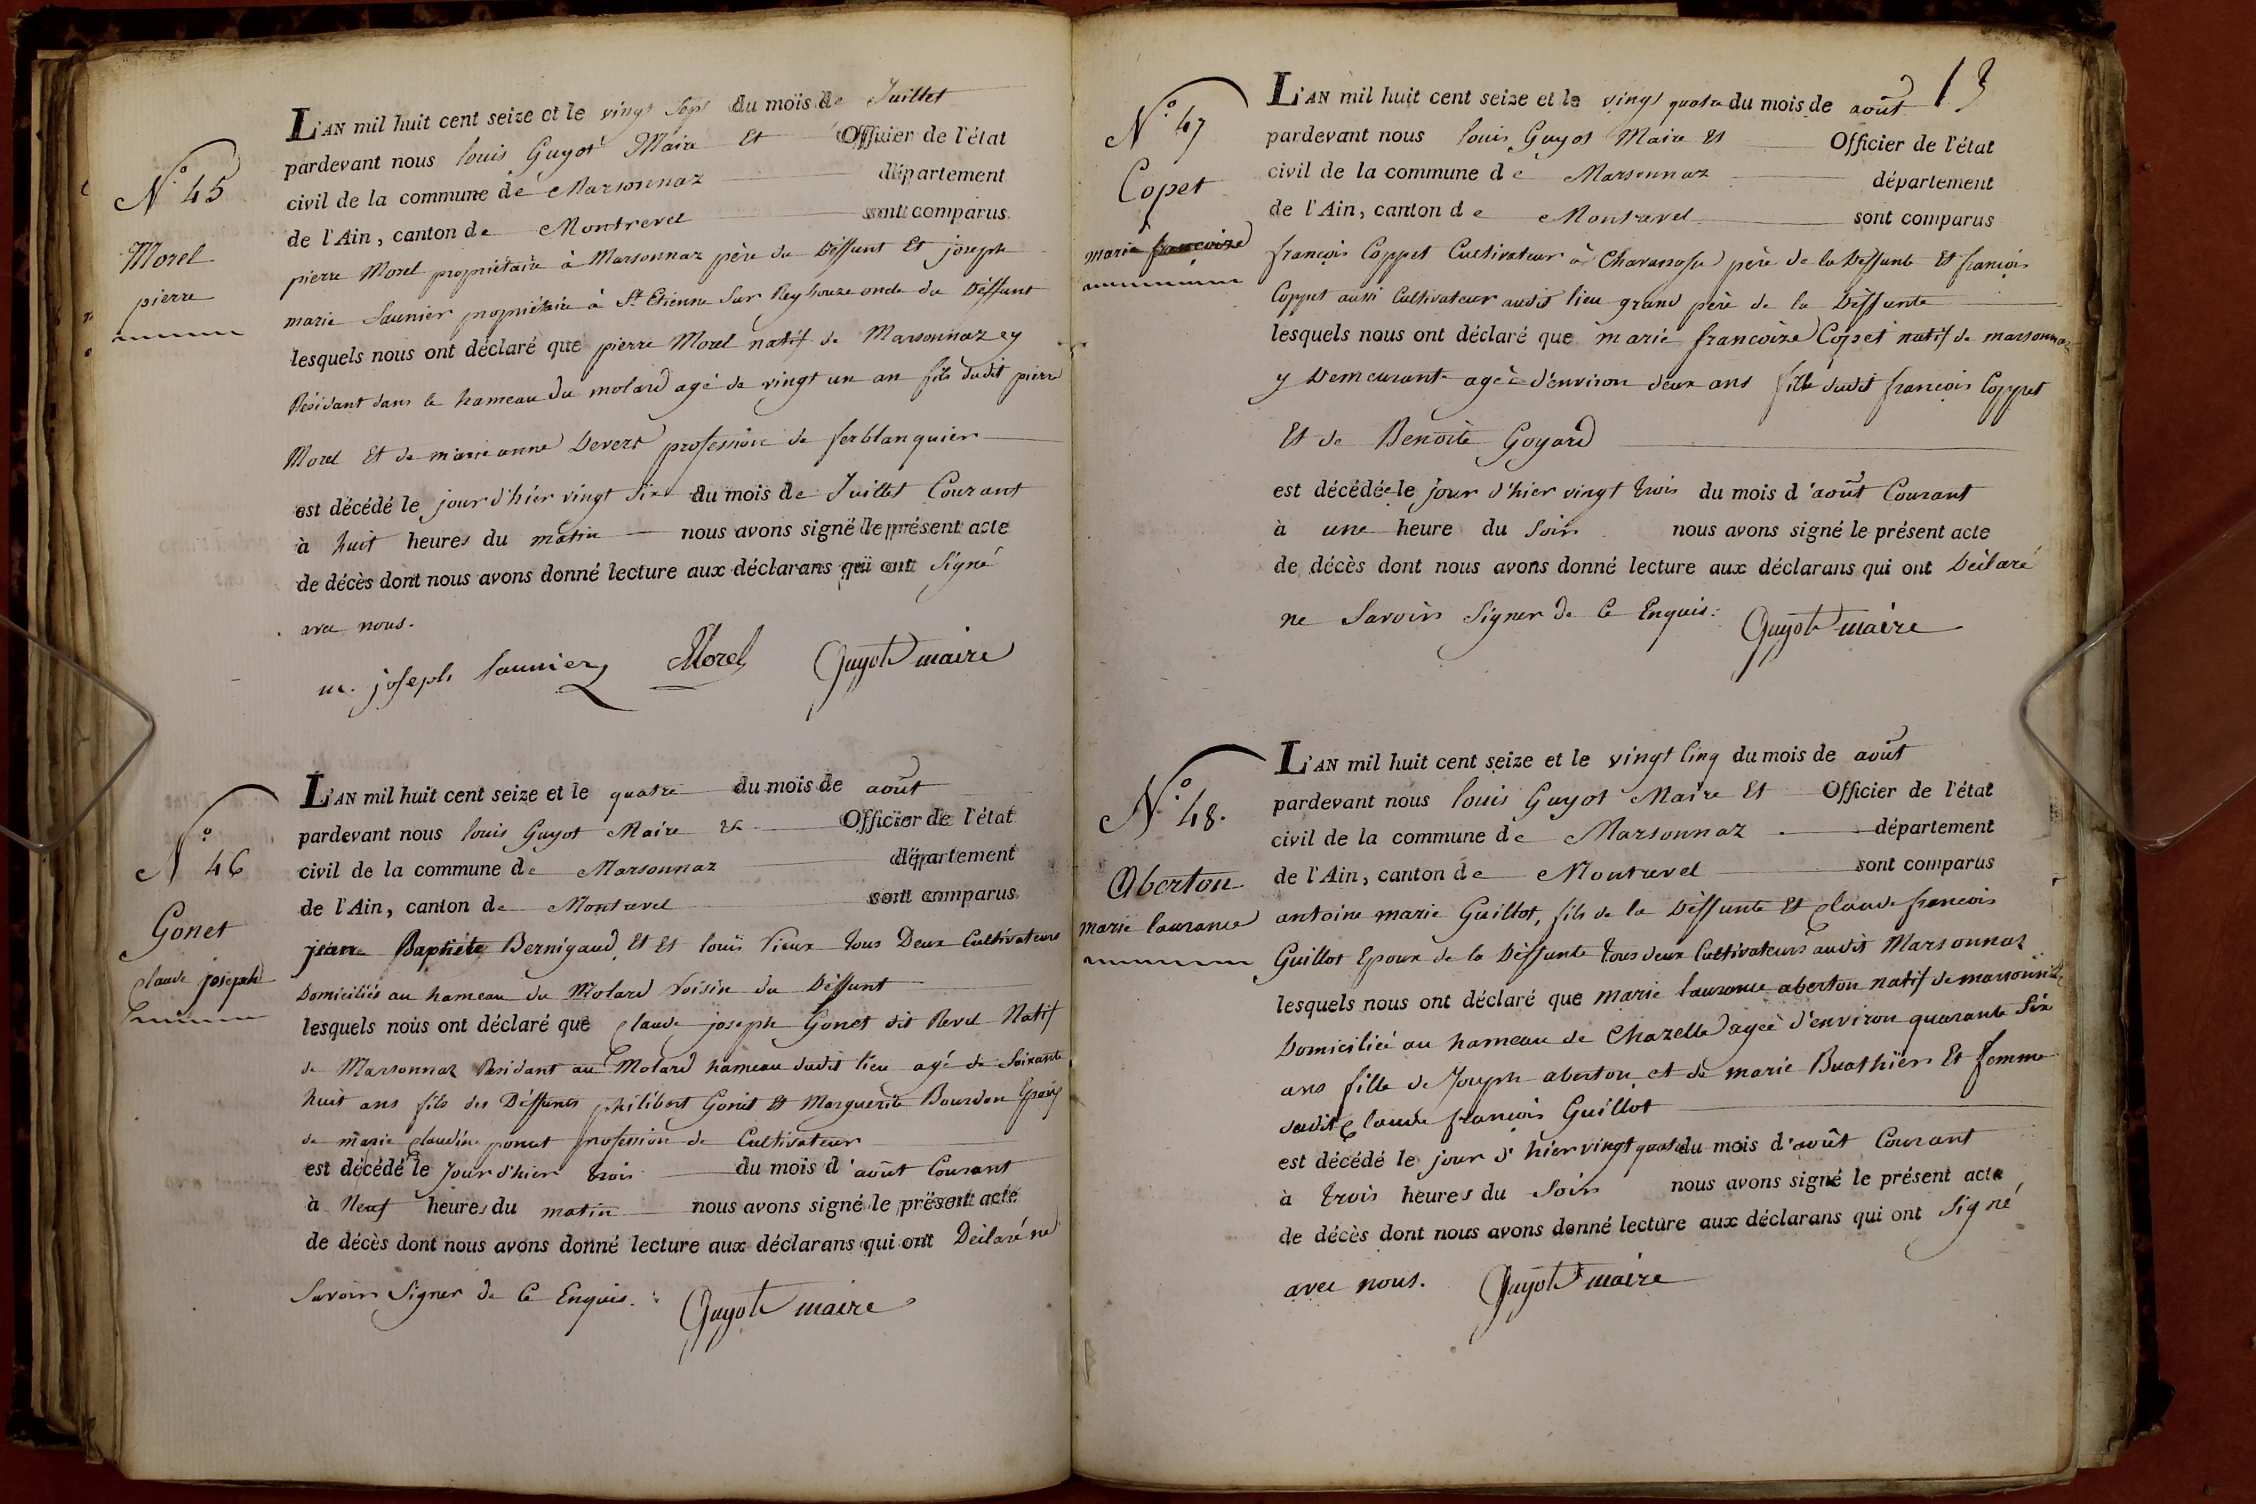 N.° 45
Morel
pierre
L'AN mil huit cent seize et le vingt Sept du mois de Juillet
pardevant nous louis Guyot Maire Et Officier de l'état
civil de la commune de Marsonnaz département
de l'Ain, canton de Montrevel sont comparus
pierre Morel propriétaire à Marsonnaz père du Déffunt Et joseph
marie Saunier propriétaire à St Etienne Sur Reyssouze oncle du Déffunt
lesquels nous ont déclaré que pierre Morel natif de Marsonnaz ey
Résidant dans le hameau du molard agé de vingt un an fils dudit pierre
Morel Et de marie anne Devert profession de ferblanquier
est décédé le jour d'hier vingt Six du mois de Juillet Courant
à huit heures du matin nous avons signé le présent acte
de décès dont nous avons donné lecture aux déclarans qui ont Signé
avec nous.
m. joseph Saunier Morel Guyot maire
N° 46
Gonet
Claude joseph
L'AN mil huit cent seize et le quatre du mois de août
pardevant nous louis Guyot Maire Et Officier de l'état
civil de la commune de Marsonnaz département
de l'Ain, canton de Montrevel sont comparus
jean Baptiste Bernigaud Et Et louis Vieux tous Deux Cultivateurs
Domiciliés au hameau du Molard Voisin du Déffunt
lesquels nous ont déclaré que Claude joseph Gonet dit Revel Natif
de Marsonnaz Résidant au Molard hameau dudit lieu agé de Soixante
huit ans fils des Déffunts philibert Gonet Et Marguerite Bourdon Epoux
de marie Claudine ponut profession de Cultivateur
est décédé le Jour d'hier trois du mois d'août Courant
à Neuf heures du matin nous avons signé le présent acte
de décès dont nous avons donné lecture aux déclarans qui ont Déclaré ne
Savoir Signer de Ce Enquis. Guyot maire
13
N.° 47
Copet
marie françoise
L'AN mil huit cent seize et le vingt quatre du mois de août
pardevant nous louis Guyot Maire Et Officier de l'état
civil de la commune de Marsonnaz département
de l'Ain, canton de Montrevel sont comparus
françois Coppet Cultivateur à Charanosse père de la Déffunte Et françois
Coppet aussi Cultivateur audit lieu grand père de la Déffunte
lesquels nous ont déclaré que marie francoise Copet natif de marsonnaz
y Demeurant agée d'environ deux ans fille dudit françois Coppet
Et de Benoite Goyard
est décédée le jour d'hier vingt trois du mois d'août Courant
à une heure du Soir nous avons signé le présent acte
de décès dont nous avons donné lecture aux déclarans qui ont Déclaré
ne Savoir Signer de Ce Enquis. Guyot maire
N.° 48.
Oberton
marie laurance
L'AN mil huit cent seize et le vingt Cinq du mois de août
pardevant nous louis Guyot Maire Et Officier de l'état
civil de la commune de Marsonnaz département
de l'Ain, canton de Montrevel sont comparus
antoine marie Guillot, fils de la Déffunte Et Claude francois
Guillot Epoux de la Déffunte tous deux Cultivateurs audit Marsonnaz
lesquels nous ont déclaré que marie laurance aberton natif de marsonnaz
Domiciliée au hameau de Chazelle agée d'environ quarante Six
ans fille de Joseph aberton et de marie Buathier Et femme
dudit Claude françois Guillot
est décédé le jour d'hier vingt quatre du mois d'août Courant
à trois heures du Soir nous avons signé le présent acte
de décès dont nous avons donné lecture aux déclarans qui ont Signé
avec nous. Guyot maire